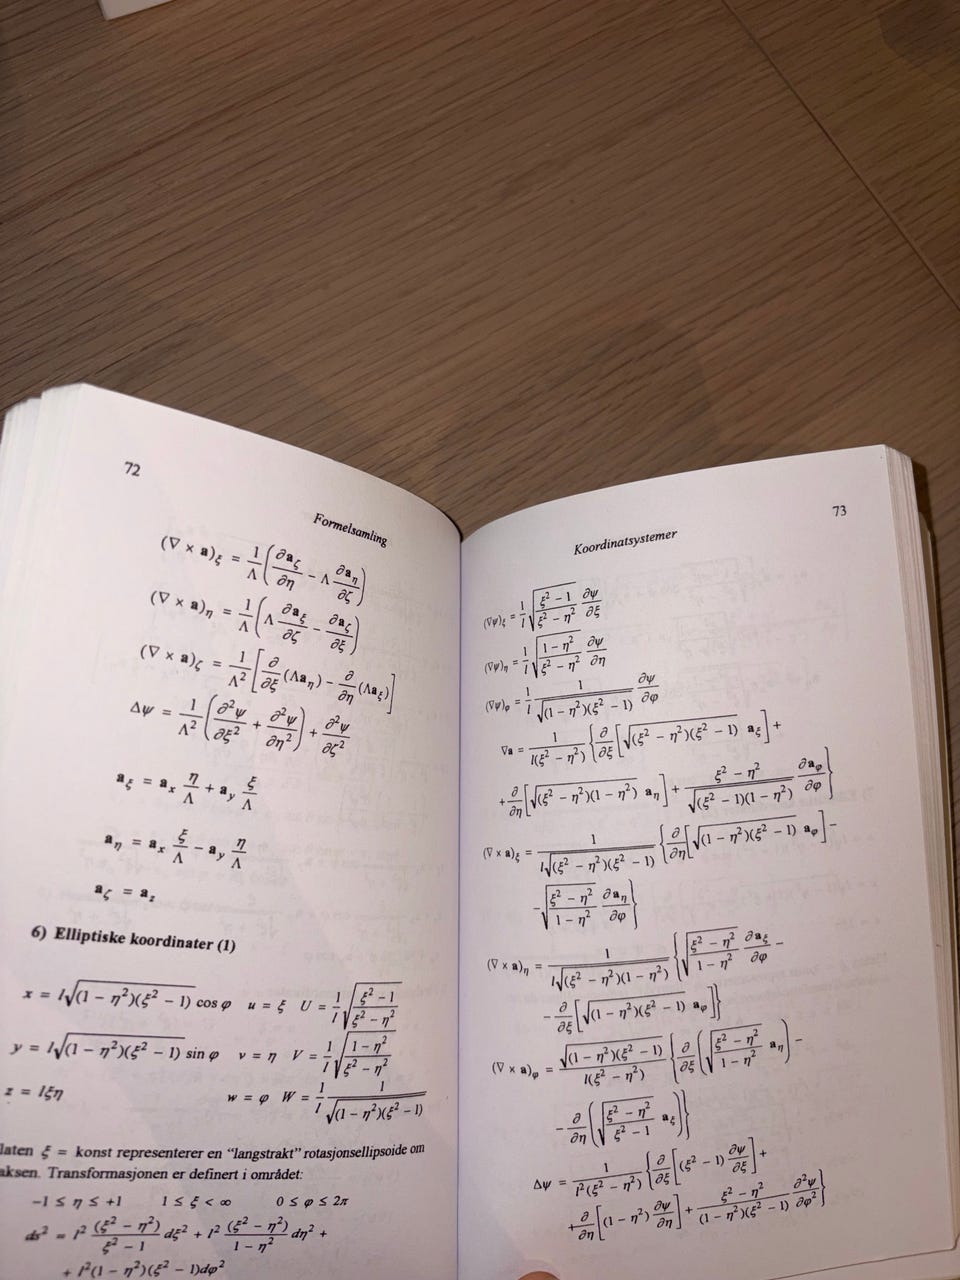 72
Formelsamling
(∇ × a)ξ = 1/Λ (∂aζ/∂η − Λ ∂aη/∂ζ)
(∇ × a)η = 1/Λ (Λ ∂aξ/∂ζ − ∂aζ/∂ξ)
(∇ × a)ζ = 1/Λ² [∂/∂ξ (Λaη) − ∂/∂η (Λaξ)]
Δψ = 1/Λ² (∂²ψ/∂ξ² + ∂²ψ/∂η²) + ∂²ψ/∂ζ²
aξ = ax η/Λ + ay ξ/Λ
aη = ax ξ/Λ − ay η/Λ
aζ = az
6) Elliptiske koordinater (1)
x = l√((1 − η²)(ξ² − 1)) cos φ u = ξ U = 1/l √((ξ² − 1)/(ξ² − η²))
y = l√((1 − η²)(ξ² − 1)) sin φ v = η V = 1/l √((1 − η²)/(ξ² − η²))
z = lξη w = φ W = 1/l 1/√((1 − η²)(ξ² − 1))
laten ξ = konst representerer en “langstrakt” rotasjonsellipsoide om
aksen. Transformasjonen er definert i området:
−1 ≤ η ≤ +1 1 ≤ ξ < ∞ 0 ≤ φ ≤ 2π
ds² = l² (ξ² − η²)/(ξ² − 1) dξ² + l² (ξ² − η²)/(1 − η²) dη² +
+ l²(1 − η²)(ξ² − 1)dφ²
73
Koordinatsystemer
(∇ψ)ξ = 1/l √((ξ² − 1)/(ξ² − η²)) ∂ψ/∂ξ
(∇ψ)η = 1/l √((1 − η²)/(ξ² − η²)) ∂ψ/∂η
(∇ψ)φ = 1/l 1/√((1 − η²)(ξ² − 1)) ∂ψ/∂φ
∇a = 1/(l(ξ² − η²)) {∂/∂ξ [√((ξ² − η²)(ξ² − 1)) aξ] +
+ ∂/∂η [√((ξ² − η²)(1 − η²)) aη] + (ξ² − η²)/√((ξ² − 1)(1 − η²)) ∂aφ/∂φ}
(∇ × a)ξ = 1/(l√((ξ² − η²)(ξ² − 1))) {∂/∂η [√((1 − η²)(ξ² − 1)) aφ] −
− √((ξ² − η²)/(1 − η²)) ∂aη/∂φ}
(∇ × a)η = 1/(l√((ξ² − η²)(1 − η²))) {√((ξ² − η²)/(1 − η²)) ∂aξ/∂φ −
− ∂/∂ξ [√((1 − η²)(ξ² − 1)) aφ]}
(∇ × a)φ = √((1 − η²)(ξ² − 1))/(l(ξ² − η²)) {∂/∂ξ (√((ξ² − η²)/(1 − η²)) aη) −
− ∂/∂η (√((ξ² − η²)/(ξ² − 1)) aξ)}
Δψ = 1/(l²(ξ² − η²)) {∂/∂ξ [(ξ² − 1) ∂ψ/∂ξ] +
+ ∂/∂η [(1 − η²) ∂ψ/∂η] + (ξ² − η²)/((1 − η²)(ξ² − 1)) ∂²ψ/∂φ²}